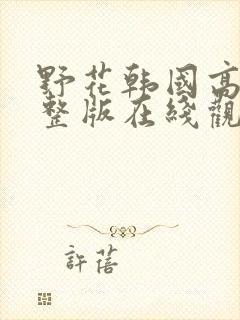 野花韩國高
整版在线觀
許蓓